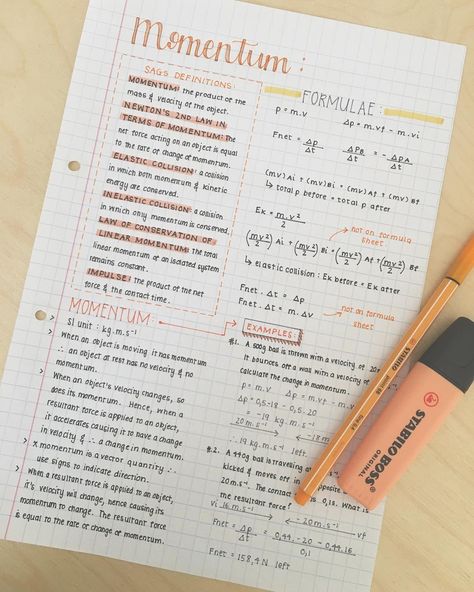 Momentum:
SAGS DEFINITIONS:
MOMENTUM: the product of the
mass & velocity of the object.
NEWTON'S 2ND LAW IN
TERMS OF MOMENTUM: The
net force acting on an object is equal
to the rate of change of momentum.
ELASTIC COLLISION: a collision
in which both momentum & kinetic
energy are conserved.
INELASTIC COLLISION: a collision
in which only momentum is conserved.
LAW OF CONSERVATION OF
LINEAR MOMENTUM: The total
linear momentum of an isolated system
remains constant.
IMPULSE: The product of the net
force & the contact time.
FORMULAE:
p = m.v Δp = m.vf - m.vi
Fnet = Δp/Δt ΔpB/Δt = -ΔpA/Δt
(mv)Ai + (mv)Bi = (mv)Af + (mv)Bf
↳ total p before = total p after
Ek = m.v²/2
not on formula
sheet
(mv²/2)Ai + (mv²/2)Bi = (mv²/2)Af + (mv²/2)Bf
↳ elastic collision: Ek before = Ek after
Fnet . Δt = Δp
Fnet . Δt = m.Δv
not on formula
sheet
MOMENTUM:
> SI unit: kg.m.s⁻¹
> When an object is moving, it has momentum
∴ an object at rest has no velocity & no
momentum.
> When an object's velocity changes, so
does its momentum. Hence, when a
resultant force is applied to an object,
it accelerates causing it to have a change
in velocity & ∴ a change in momentum.
> * momentum is a vector quantity ∴
use signs to indicate direction.
> When a resultant force is applied to an object,
it's velocity will change, hence causing its
momentum to change. The resultant force
is equal to the rate of change of momentum.
EXAMPLES:
#1. A 500g ball is thrown with a velocity of 20
It bounces off a wall with a velocity of
calculate the change in momentum.
p = m.v Δp = m.vf - m.v
Δp = 0,5.-18 - 0,5.20
= -19 kg.m.s⁻¹
20m.s⁻¹ -18
∴ 19 kg.m.s⁻¹ left
#2. A 440g ball is traveling
kicked & moves off in opposite
20m.s⁻¹. The contact is 0,1s. What is
the resultant force?
Vi 16m.s⁻¹ -20m.s⁻¹ vf
Fnet = Δp/Δt = 0,44.-20 - 0,44.16/0,1
Fnet = 158,4N left
STABILO
STABILO BOSS
ORIGINAL